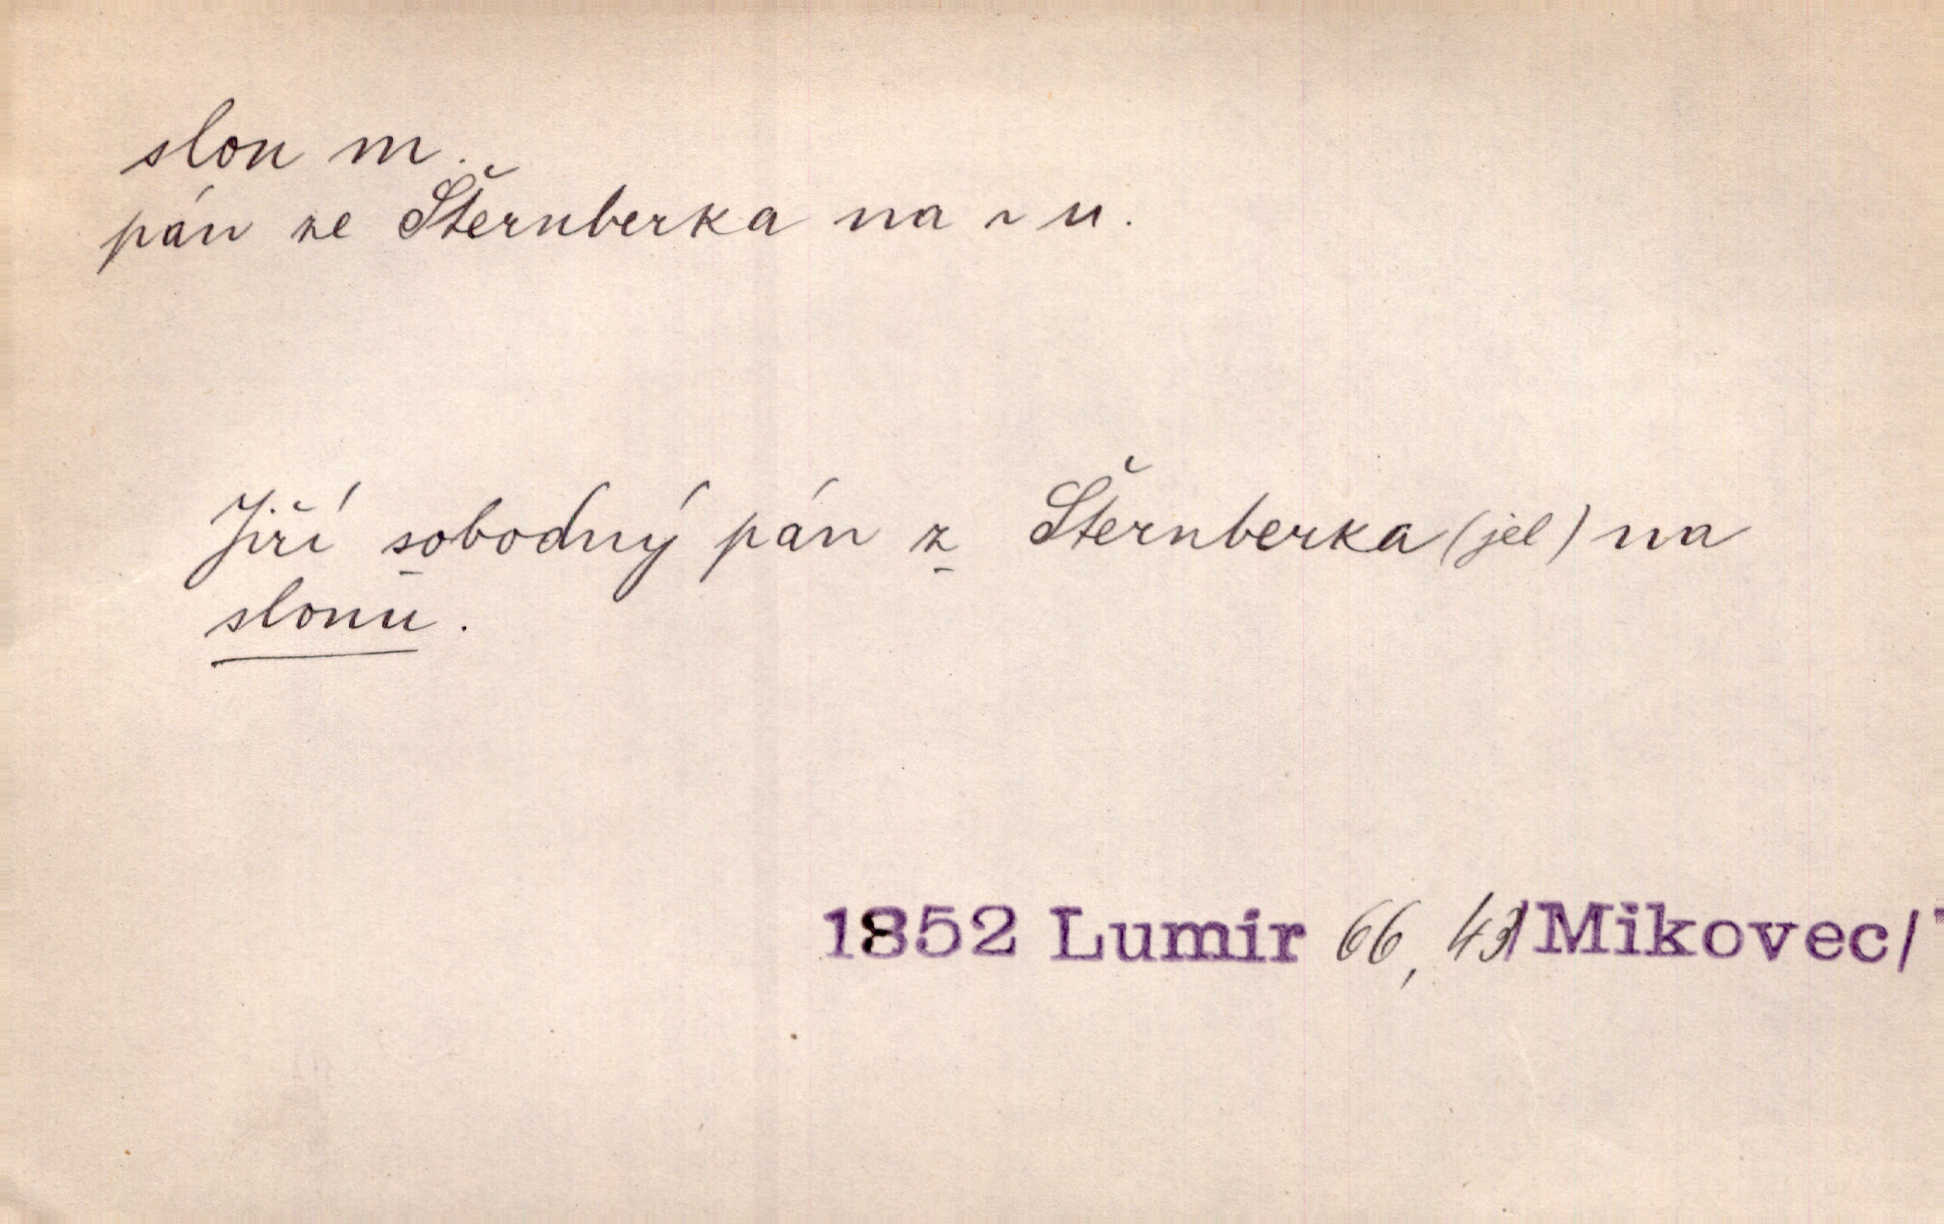 slon m.
pán ze Šternberka na ~ u.
Jiří sobodný pán z Šternberka (jel) na
slonu.
1852 Lumír 66, 43 /Mikovec/